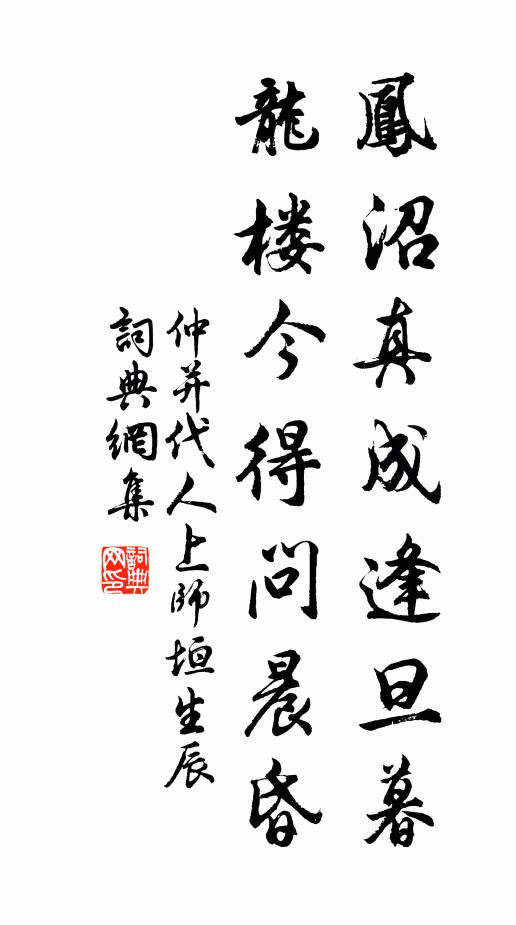 鳳沼真成逢旦暮
龍楼今得問晨昏
仲并代人上師垣生辰
詞典網集
詞典网印